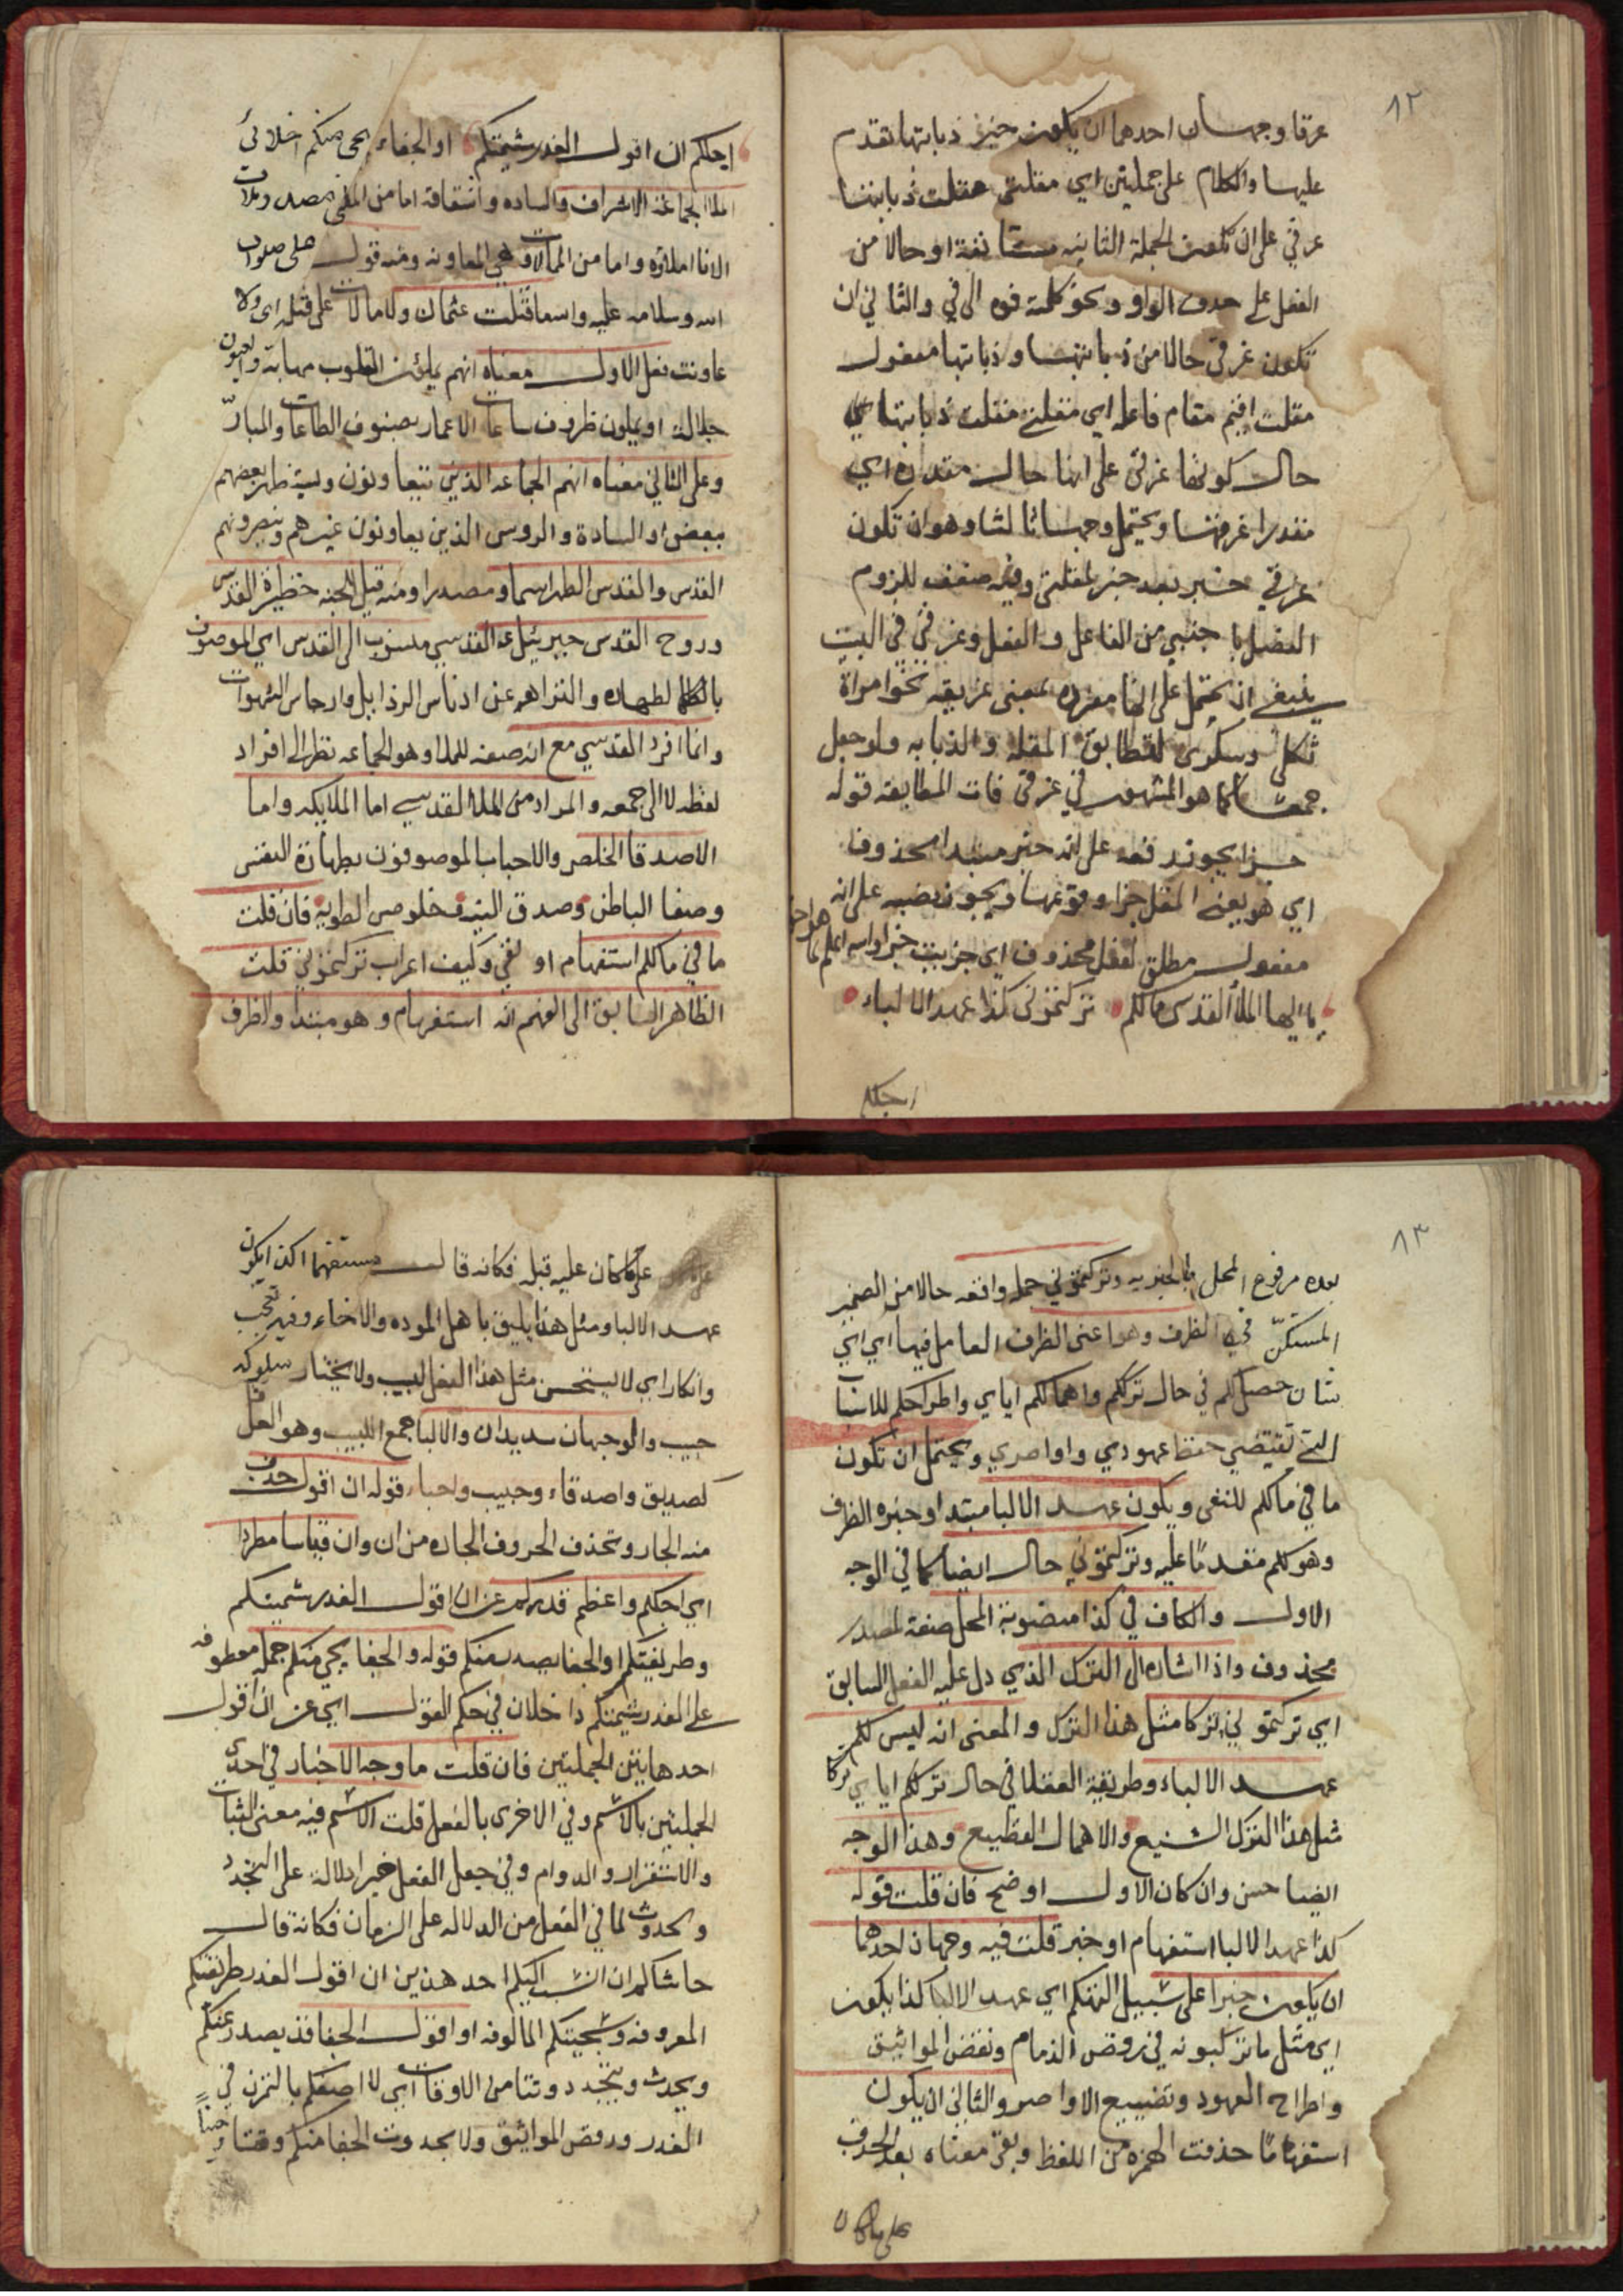 ٨٢
عرقا وجهان احدهما ان يكون خبر ذبابتها تقدم
عليها والكلام على جملتين اي مقلتي مقلت ذبابتها
عرقي على ان تكون الجملة الثانيه مستانفة او حالا من
الفعل على حذف الواو ونحو كلمته فوه الى في والثاني ان
تكون غرقى حالا من ذبابتها وذبابتها مفعول
مقلت اقيم مقام فاعله اي مقلتي مقلت ذبابتها في
حال كونها غرقى على انها حال مقدره اي
مقدرا غرقها ويحتمل وجها ثالثا وهو ان تكون
غرقي خبر بعد خبر لمقلتي وفيه ضعف للزوم
الفصل باجنبي من الفاعل والفعل وغرقي في البيت
ينبغي ان يحتمل على انها مفرده بمعنى غريقه نحو امراة
ثكلى وسكرى لتطابق المقله والذبابه ولو جعل
جمعا كما هو المشهور في غرقى فات المطابقه قوله
جزا يجوز رفعه على انه خبر مبتدا محذوف
اي هو يعني المقل جزا وقوعها ويجوز نصبه على انه
مفعول مطلق لفعل محذوف اي جزيت جزا والله اعلم
يا ايها الملأ القدسي مالكم تركتموني كذا عهد الالباء
اجلكم
اجلكم ان اقول الغدر شيمتكم او الجفاء يجي منكم اخلائي
الملا الجماعه الاشراف والساده واشتقاقه اما من الملئ مصدر وملات
الانا املاؤه واما من الممالات وهي المعاونه ومنه قول علي صلوات
الله وسلامه عليه والله ما قتلت عثمان ولا مالات على قتله اي ولا
عاونت فعلى الاول معناه انهم يملؤن القلوب مهابة والعيون
جلالة او يملون ظروف ساعات الاعمار بصنوف الطاعات والمبارّ
وعلى الثاني معناه انهم الجماعه الذين يتعاونون ويستظهر بعضهم
ببعض او السادة والروس الذين يعاونون غيرهم وينصرونهم
القدس والقدس الطهر اسما ومصدرا ومنه قيل للجنه حظيرة القدس
وروح القدس جبرئيل ع القدسي منسوب الى القدس اي الموصوف
بالطهاره والنزاهه عن ادناس الرذايل وارجاس الشهوات
وانما افرد القدسي مع انه صفه للملا وهو الجماعه نظرا الى افراد
لفظه لا الى جمعه والمراد من الملا القدسي اما الملايكه واما
الاصدقا الخلص والاحباب الموصوفون بطهارة النفس
وصفا الباطن وصدق النيه وخلوص الطويه فان قلت
ما في مالكم استفهام او نفي وكيف اعراب تركتموني قلت
الظاهر السابق الى الفهم انه استفهام وهو مبتدا والظرف
٨٣
بعده مرفوع المحل بالخبريه وتركتموني جمله واقعه حالا من الضمير
المستكنّ في الظرف وهو اعني الظرف العامل فيها اي اي
شان حصل لكم في حال ترككم واهمالكم اياي واطراحكم للاسباب
التي تقتضي حفظ عهودي واواصري ويحتمل ان تكون
ما في مالكم للنفي ويكون عهد الالبا مبتدا وخبره الظرف
وهو لكم مقدمًا عليه وتركتموني حال ايضا كما في الوجه
الاول والكاف في كذا منصوبة المحل صفة لمصدر
محذوف واذا اشاره الى الترك الذي دل عليه الفعل السابق
اي تركتموني تركا مثل هذا الترك والمعنى انه ليس لكم
عهد الالباء وطريقة العقلا في حال ترككم اياي تركا
مثل هذا الترك الشنيع والاهمال الفظيع وهذا الوجه
ايضا حسن وان كان الاول اوضح فان قلت قوله
كذا عهد الالبا استفهام او خبر قلت فيه وجهان احدهما
ان يكون خبرا على سبيل التهكم اي عهد الالبا كذا يكون
اي مثل ما تركبونه في رفض الذمام ونقض المواثيق
واطراح العهود وتضييع الاواصر والثاني ان يكون
استفهامًا حذفت الهمزه من اللفظ وبقي معناه بعد الحذف
على ما كان
على ما كان عليه قبله فكانه قال مستفهما اكذا يكون
عهد الالبا ومثل هذا يليق باهل الموده والاخاء وفيه تعجب
وانكار اي لا يستحسن مثل هذا الفعل لبيب ولا يختار سلوكه
حبيب والوجهان سديدان والالبا جمع اللبيب وهو العاقل
كصديق واصدقاء وحبيب واحباء قوله ان اقول حذف
منه الجار وتحذف الحروف الجاره من ان وان قياسا مطردا
اي اجلكم واعظم قدركم عن ان اقول الغدر شيمتكم
وطريقتكم او الجفا يصدر منكم قوله والجفا يجي منكم جمله معطوفه
على الغدر شيمتكم داخلان في حكم القول اي عن ان اقول
احد هاتين الجملتين فان قلت ما وجه الاخبار في احدى
الجملتين بالاسم وفي الاخرى بالفعل قلت الاسم فيه معنى الثبات
والاستقرار والدوام وفي جعل الفعل خبرا دلالة على التجدد
والحدوث لما في الفعل من الدلاله على الزمان فكانه قال
حاشاكم ان انسب اليكم احد هذين ان اقول الغدر طريقتكم
المعروفه وسجيتكم المالوفه او اقول الجفا قد يصدر عنكم
ويحدث ويتجدد وقتا من الاوقات اي لا اصفكم بالتمرن في
الغدر ورفض المواثيق ولا بحدوث الجفا منكم وقتا وحينا